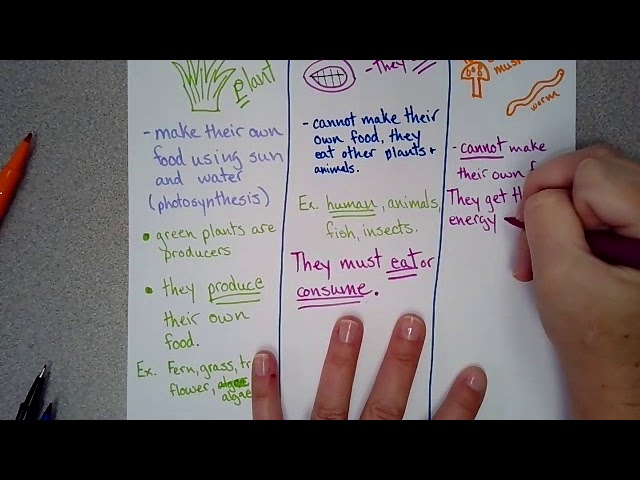 Plant
- make their own
food using sun
and water
(photosynthesis)
• green plants are
producers
• they produce
their own
food.
Ex. Fern, grass,
flower, algae
algae
- They
- cannot make their
own food, they
eat other plants +
animals.
Ex. human, animals,
fish, insects.
They must eat or
consume.
worm
- cannot make
their own
They get
energy